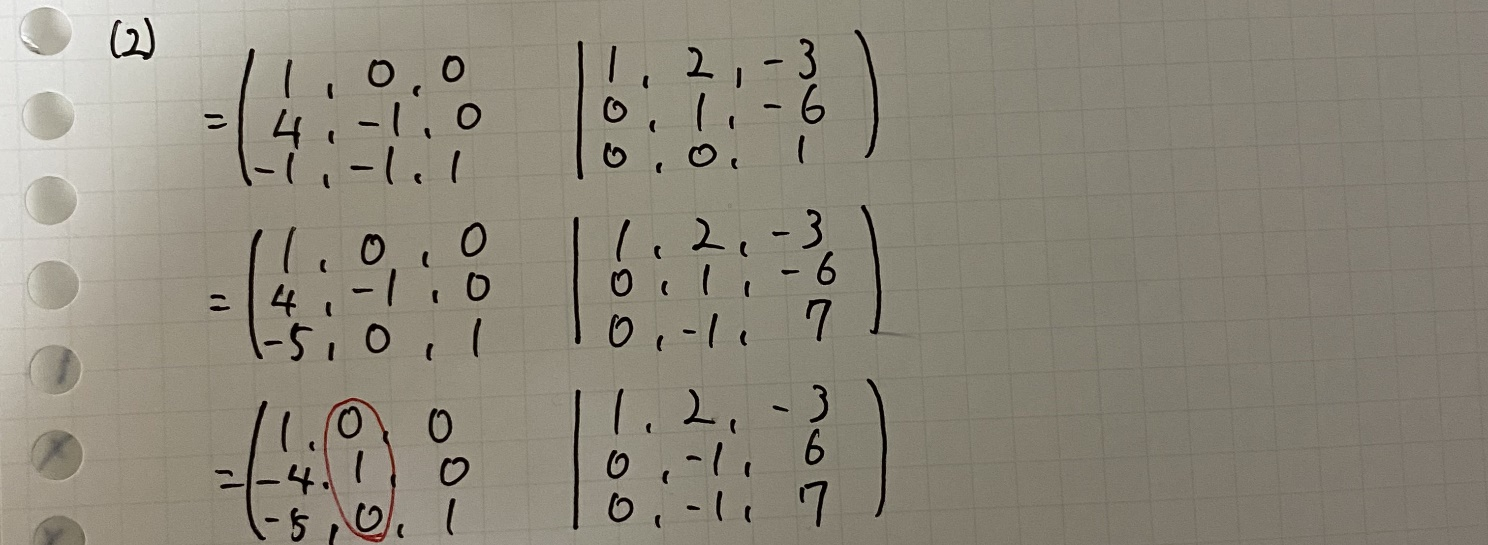 (2)
= ( 1, 0, 0 | 1, 2, -3 )
4, -1, 0 | 0, 1, -6
-1, -1, 1 | 0, 0, 1
= ( 1, 0, 0 | 1, 2, -3 )
4, -1, 0 | 0, 1, -6
-5, 0, 1 | 0, -1, 7
= ( 1, 0, 0 | 1, 2, -3 )
-4, 1, 0 | 0, -1, 6
-5, 0, 1 | 0, -1, 7